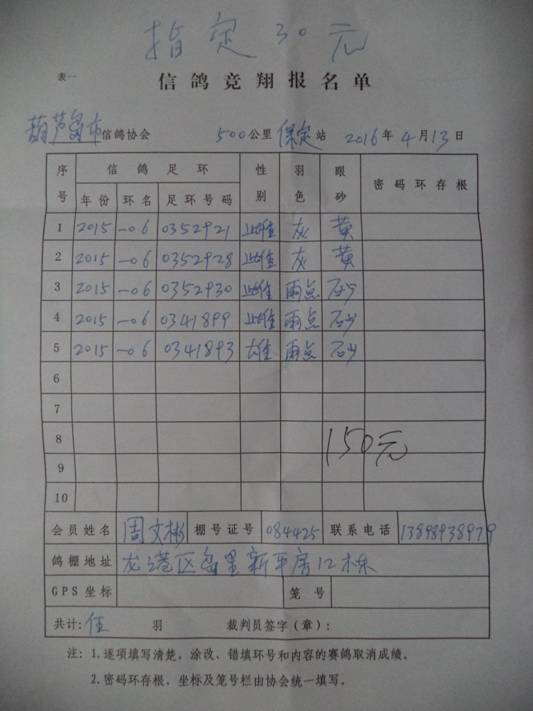 指定30元
表一
信鸽竞翔报名单
葫芦岛市信鸽协会 500公里 保定站 2016年4月13日
序号 信鸽足环 性别 羽色 眼砂 密码环存根
年份 环名 足环号码
1 2015 -06 0352921 雌 灰 黄
2 2015 -06 0352928 雌 灰 黄
3 2015 -06 0352930 雌 雨点 砂
4 2015 -06 0341899 雌 雨点 砂
5 2015 -06 0341893 雄 雨点 砂
6
7
8 150元
9
10
会员姓名 周文彬 棚号证号 084425 联系电话 13898938979
鸽棚地址 龙港区 里新平房12栋
GPS坐标 笼号
共计:伍 羽 裁判员签字(章):
注:1.逐项填写清楚,涂改、错填环号和内容的赛鸽取消成绩。
2.密码环存根、坐标及笼号栏由协会统一填写。